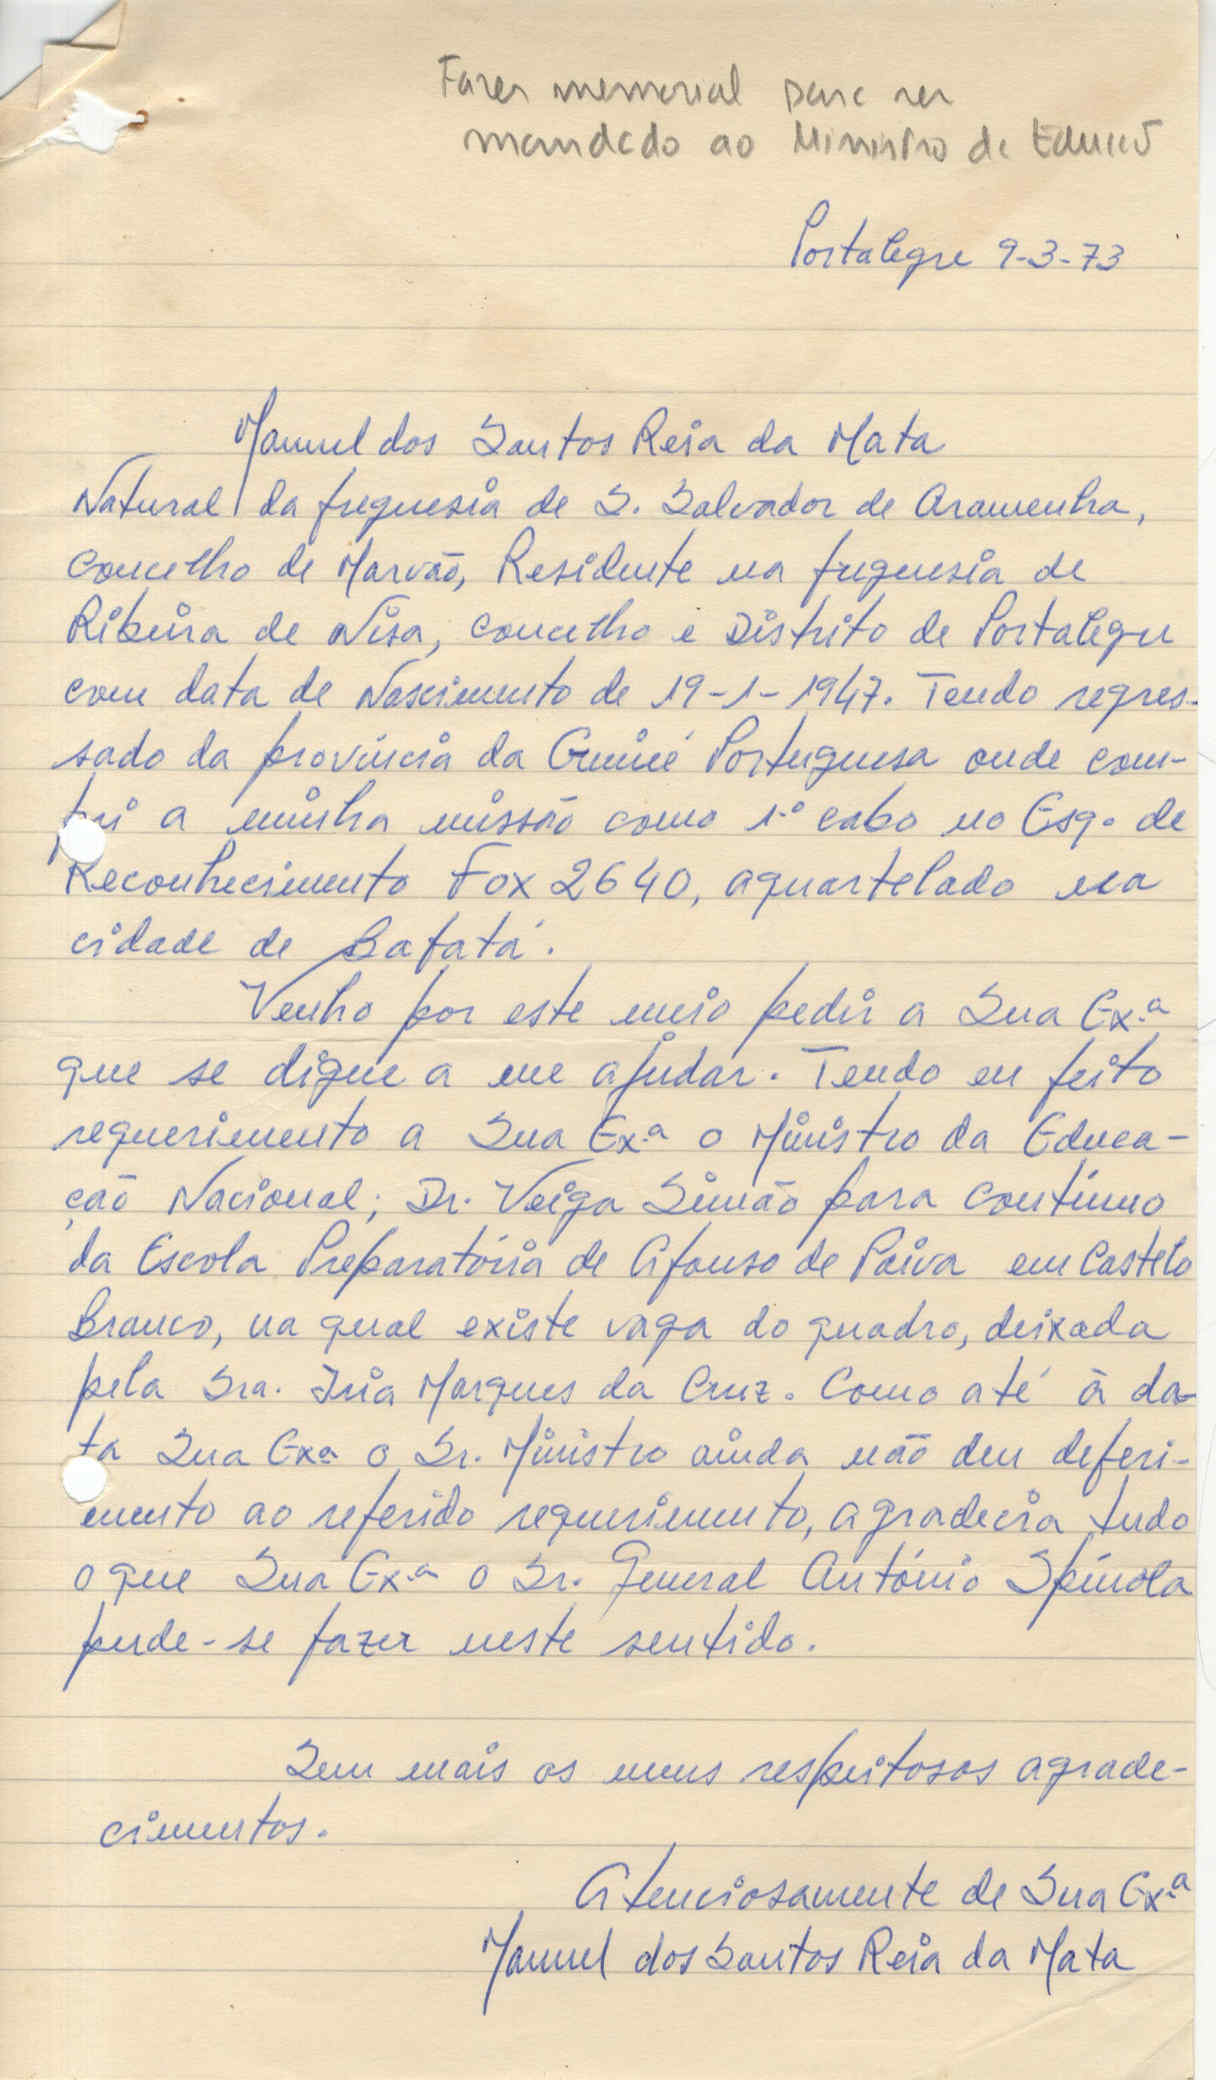 Fazer memorial para ser
mandado ao Ministro da
Portalegre 9-3-73
Manuel dos Santos Reia da Mata
Natural da freguesia de S. Salvador de Aramenha,
concelho de Marvão, Residente na freguesia de
Ribeira de Nisa, concelho e Distrito de Portalegre
com data de Nascimento de 19-1-1947. Tendo regres-
sado da província da Guiné Portuguesa onde com-
pri a minha missão como 1.º cabo no Esq. de
Reconhecimento Fox 2640, aquartelado na
cidade de Bafatá.
Venho por este meio pedir a Sua Ex.ª
que se digne a me ajudar. Tendo eu feito
requerimento a Sua Ex.ª o Ministro da Educa-
ção Nacional; Dr. Veiga Simão para contínuo
da Escola Preparatória de Afonso de Paiva em Castelo
Branco, na qual existe vaga do quadro, deixada
pela Sra. Iria Marques da Cruz. Como até à da-
ta Sua Ex.ª o Sr. Ministro ainda não deu deferi-
mento ao referido requerimento, agradecia tudo
o que Sua Ex.ª o Sr. General António Spínola
pude-se fazer neste sentido.
Sem mais os meus respeitosos agrade-
cimentos.
Atenciosamente de Sua Ex.ª
Manuel dos Santos Reia da Mata